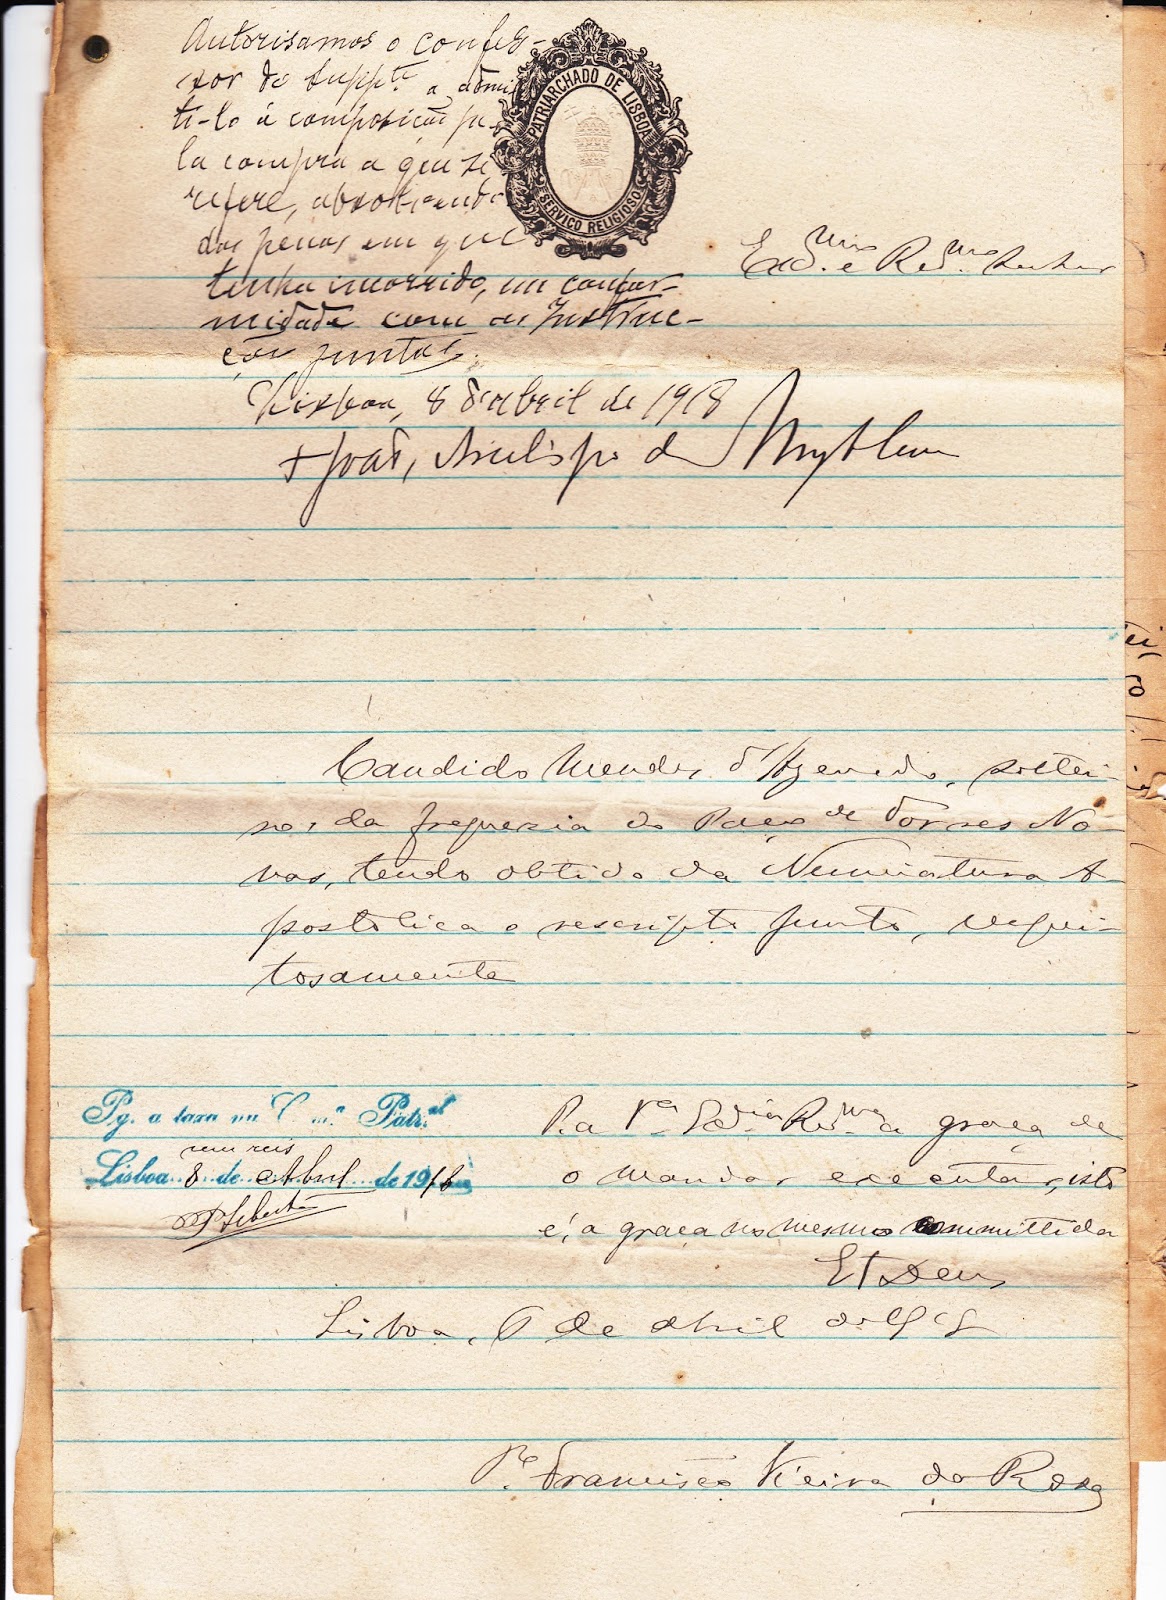 Autorisamos o confes-
sor do Supp.te a admi
ti-lo á composição pe-
la compra a que se
refere, absolvendo-o
das penas em que
tenha incorrido, em confor-
midade com as Instruc-
ções juntas.
Lisboa, 8 de abril de 1918
+ João, Arcebispo de Mytilene
PATRIARCHADO DE LISBOA
SERVIÇO RELIGIOSO
Ex.mo e Rev.mo Senhor
Candido Mendes d'Azevedo, soltei-
ro, da freguezia do Paço de Torres No-
vas, tendo obtido da Nunciatura A-
postolica o rescripto junto, respei-
tosamente
P. a V.a Ex.cia Rev.ma a graça de
o mandar executar, isto
é, a graça no mesmo committida
Et Deus
Lisboa, 6 de abril de 1918
P.e Francisco Vieira da Rosa
Pg. a taxa na C.ma Patr.al
cem reis
Lisboa 8 de Abril de 1918